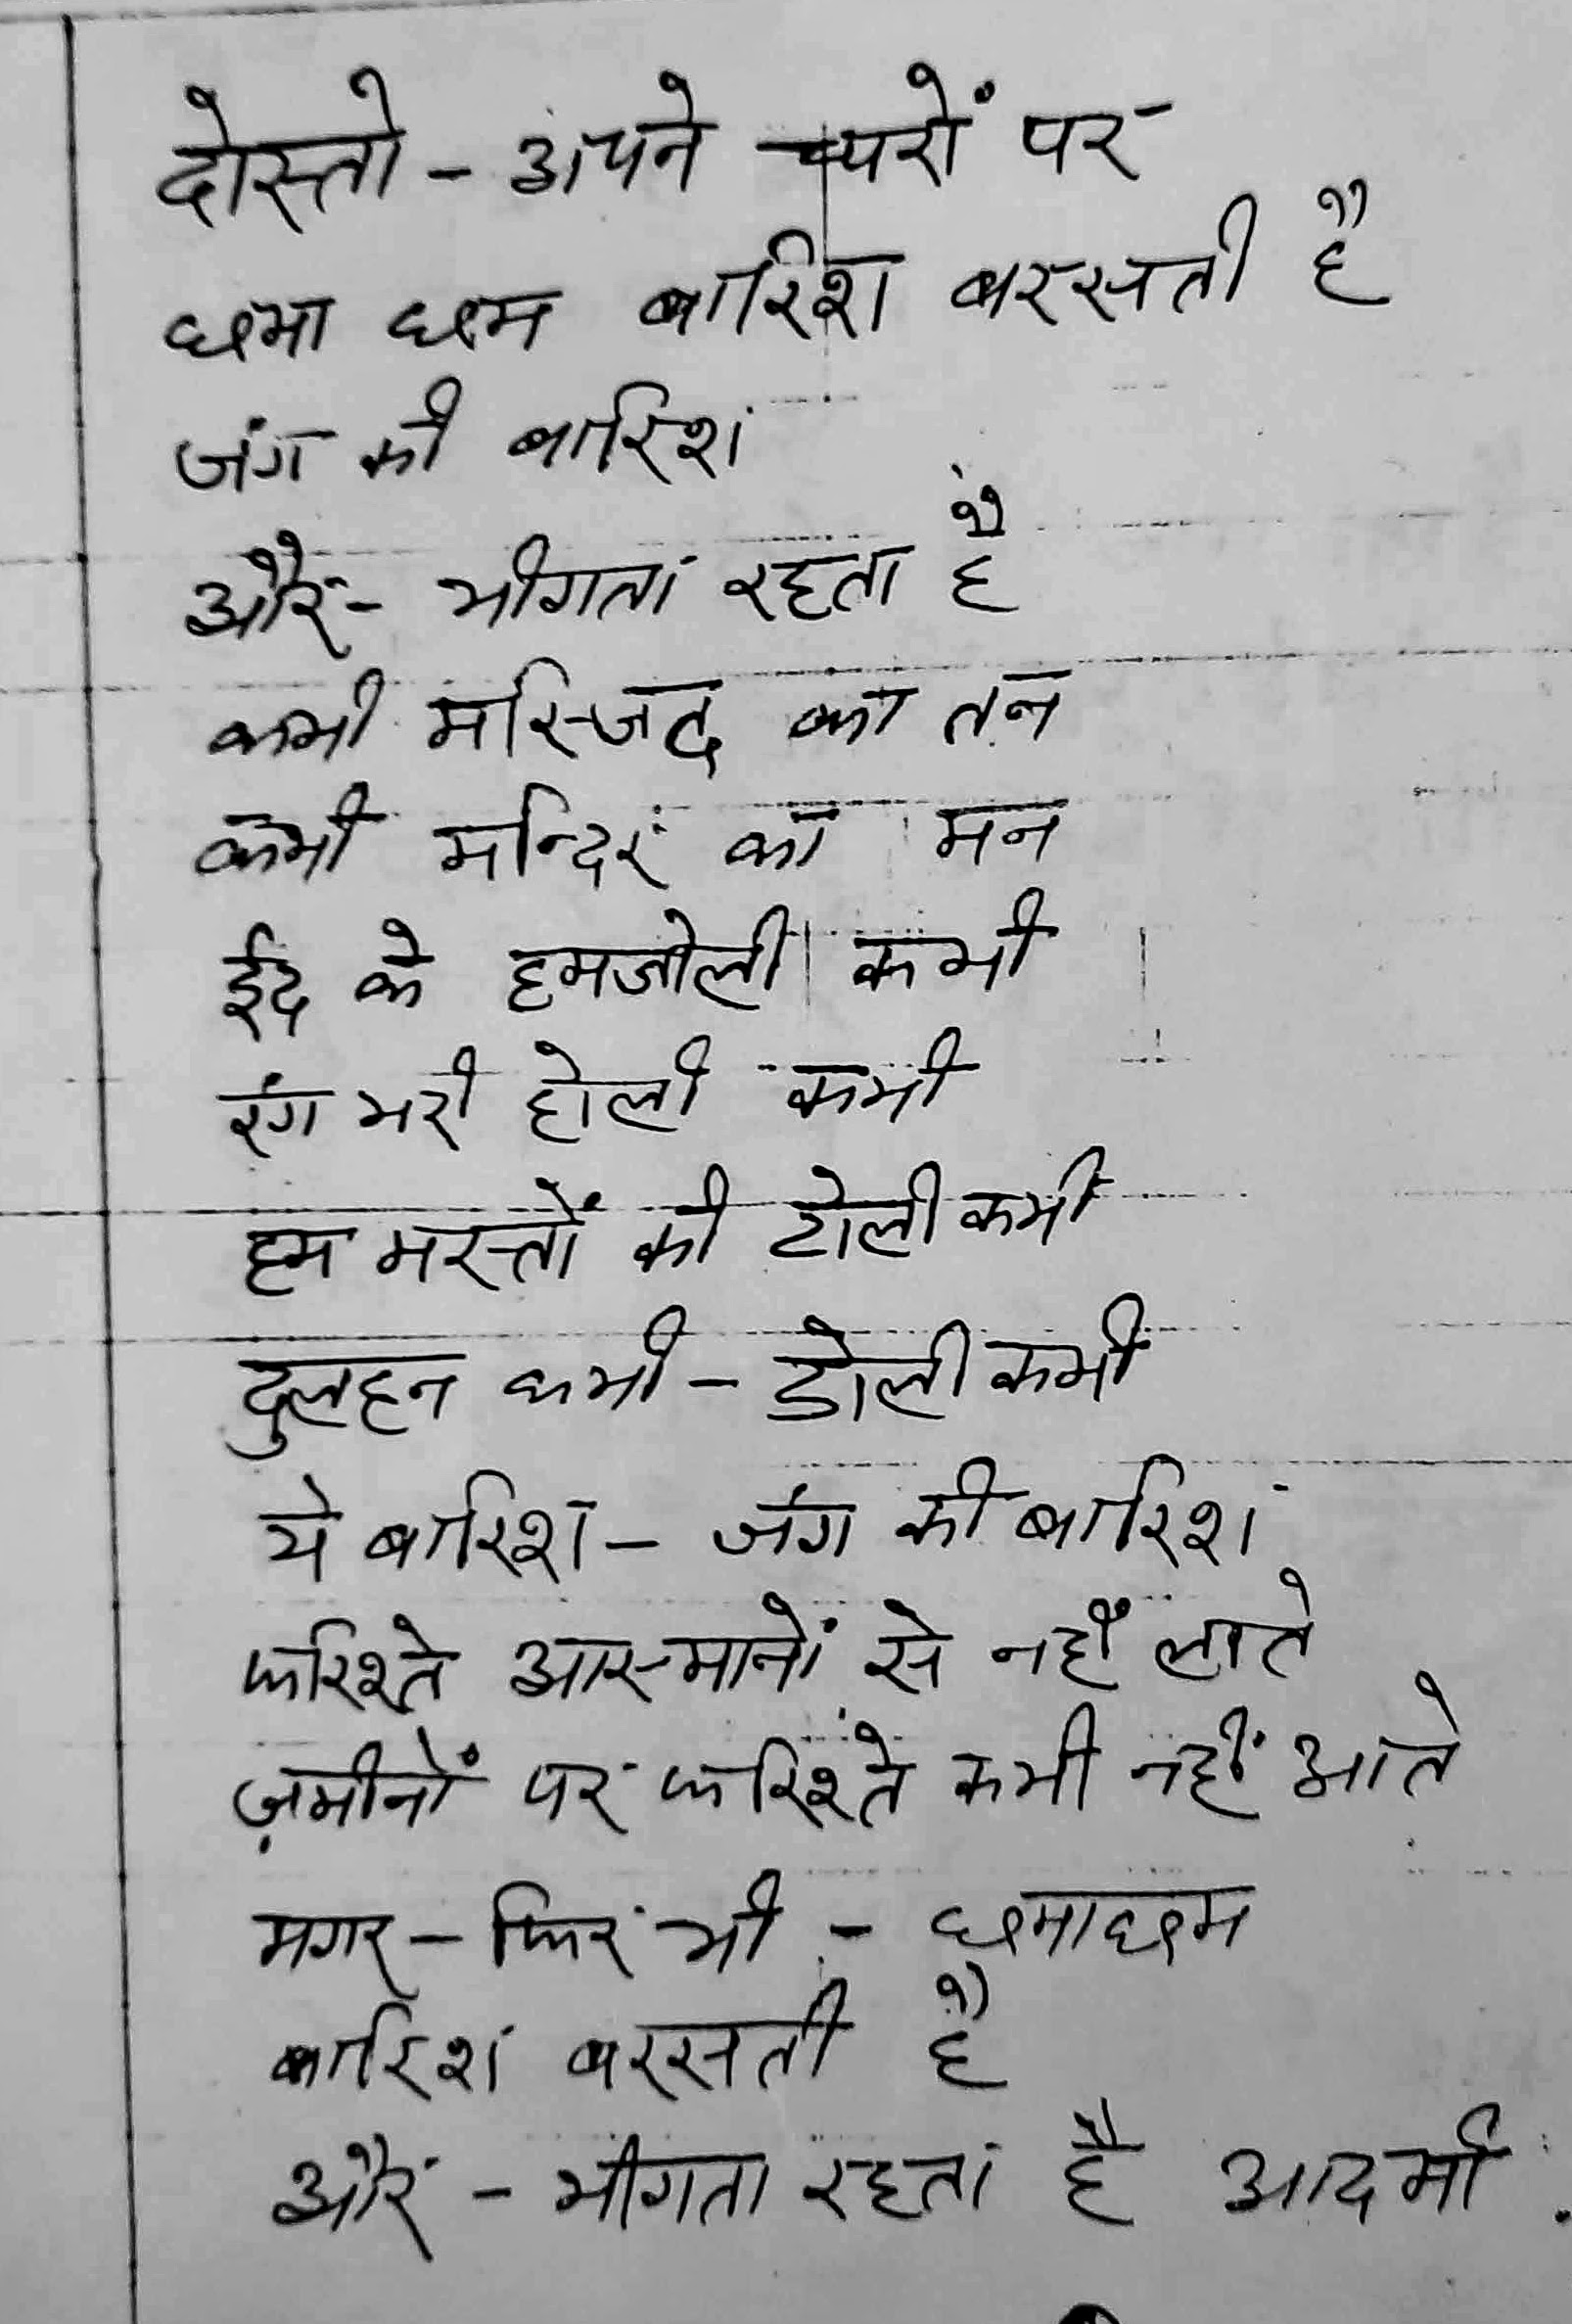 दोस्तो - अपने घरों पर
छमा छम बारिश बरसती है
जंग की बारिश
और - भीगता रहता है
कभी मस्जिद का तन
कभी मन्दिर का मन
ईद के हमजोली कभी
रंग भरी होली कभी
हम मस्तों की टोली कभी
दुलहन कभी - डोली कभी
ये बारिश - जंग की बारिश
फरिश्ते आस्मानों से नहीं लाते
ज़मीनों पर फरिश्ते कभी नहीं आते
मगर - फिर भी - छमाछम
बारिश बरसती है
और - भीगता रहता है आदमी .